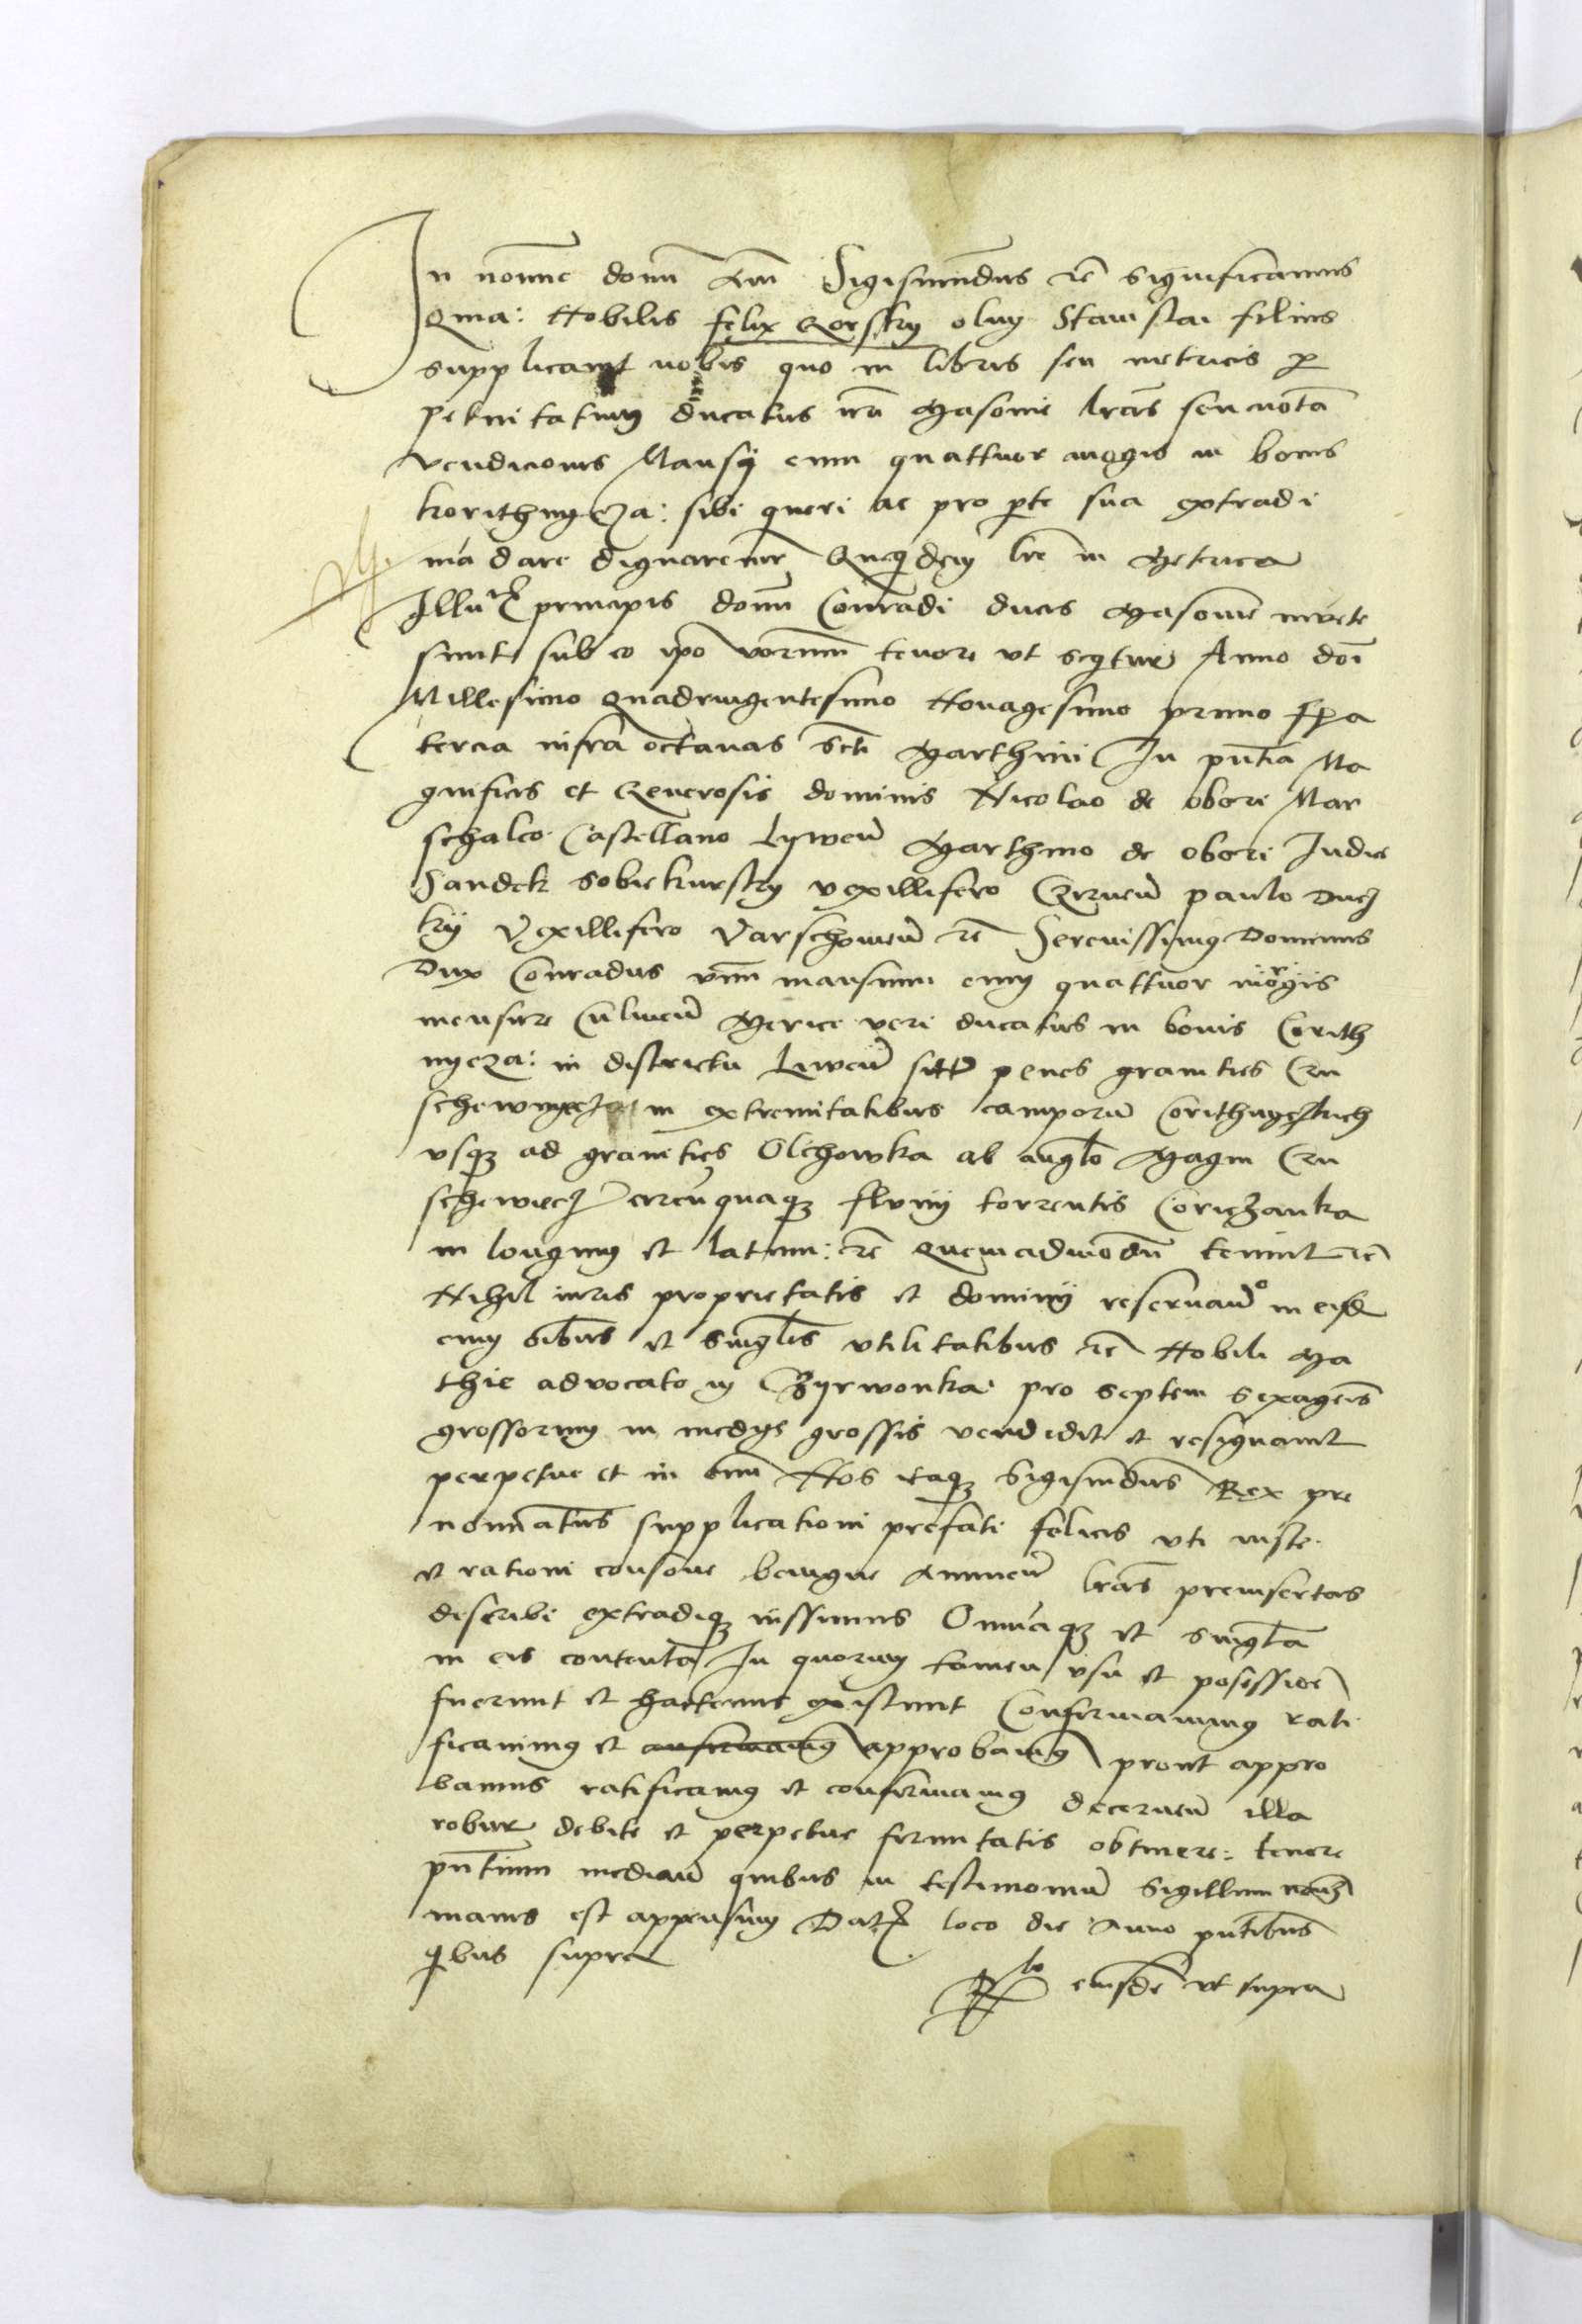 In nomine domi Am Sigismundus etc significamus
Qma: Nobilis felix Gorsky olim Stanislai filius
supplicavit nobis quo in libris seu metricis per
petuitatum ducatus nri Masovie lras seu nota
vendicionis Mansy cum quattuor iugis in bonis
korithnycza: sibi queri ac pro parte sua extradi
mandare dignaremur Quequidem lre in Metrica
Illu principis domi Conradi ducis Masovie invete
sunt sub eo ipo verum tenore ut sequitur Anno doi
Millesimo Quadringentesimo Nonagesimo primo fferia
tercia infra octavas Scti Marthini In pntia Ma
gnificis et Generosis dominis Nicolao de obori Mar
schalco Castellano Lywen Marthino de obori Iudice
Sandek Sobiekursky vexillifero Czirnen paulo Ducz
ky Vexillifero Varschowien etc Serenissimus Dominus
Dux Conradus unum mansum cum quattuor iugis
mensure Culmen Merice veri ducatus in bonis Corith
nycza: in districtu Liwen sit penes granities Cru
schewnycza in extremitatibus camporum Corithnyczkich
usque ad granities Olchowka ab anglo Magni Cru
schewiecz circumquaque fluvy torrentis Coriczanka
in longum et latum: etc Quemadmodum tenuit etc
Nihil iuris proprietatis et dominy reservando in eisd
cum oibus et singlis utilitatibus etc Nobili Ma
thie advocato in Czyrwonka pro septem sexagenis
grossorum in medys grossis vendidit et resignavit
perpetue et in evum Nos itaque Sigismundus Rex pre
nominatus supplicationi prefati felicis uti iuste
et rationi consone benigne Annuen lras preinsertas
describi extradique iussimus Omniaque et singla
in eis contenta In quorum tamen usu et possessione
fuerunt et hactenus existunt Confirmavimus rati
ficavimus et confirmavimus approbavimus prout appro
bamus ratificamus et confirmamus decernen illa
robur debite et perpetue firmitatis obtinere: tenore
pntium median quibus in testimonium Sigillum nrum
maius est appensum Dat loco die Anno pntibus
quibus supra
Rlo eiusde ut supra